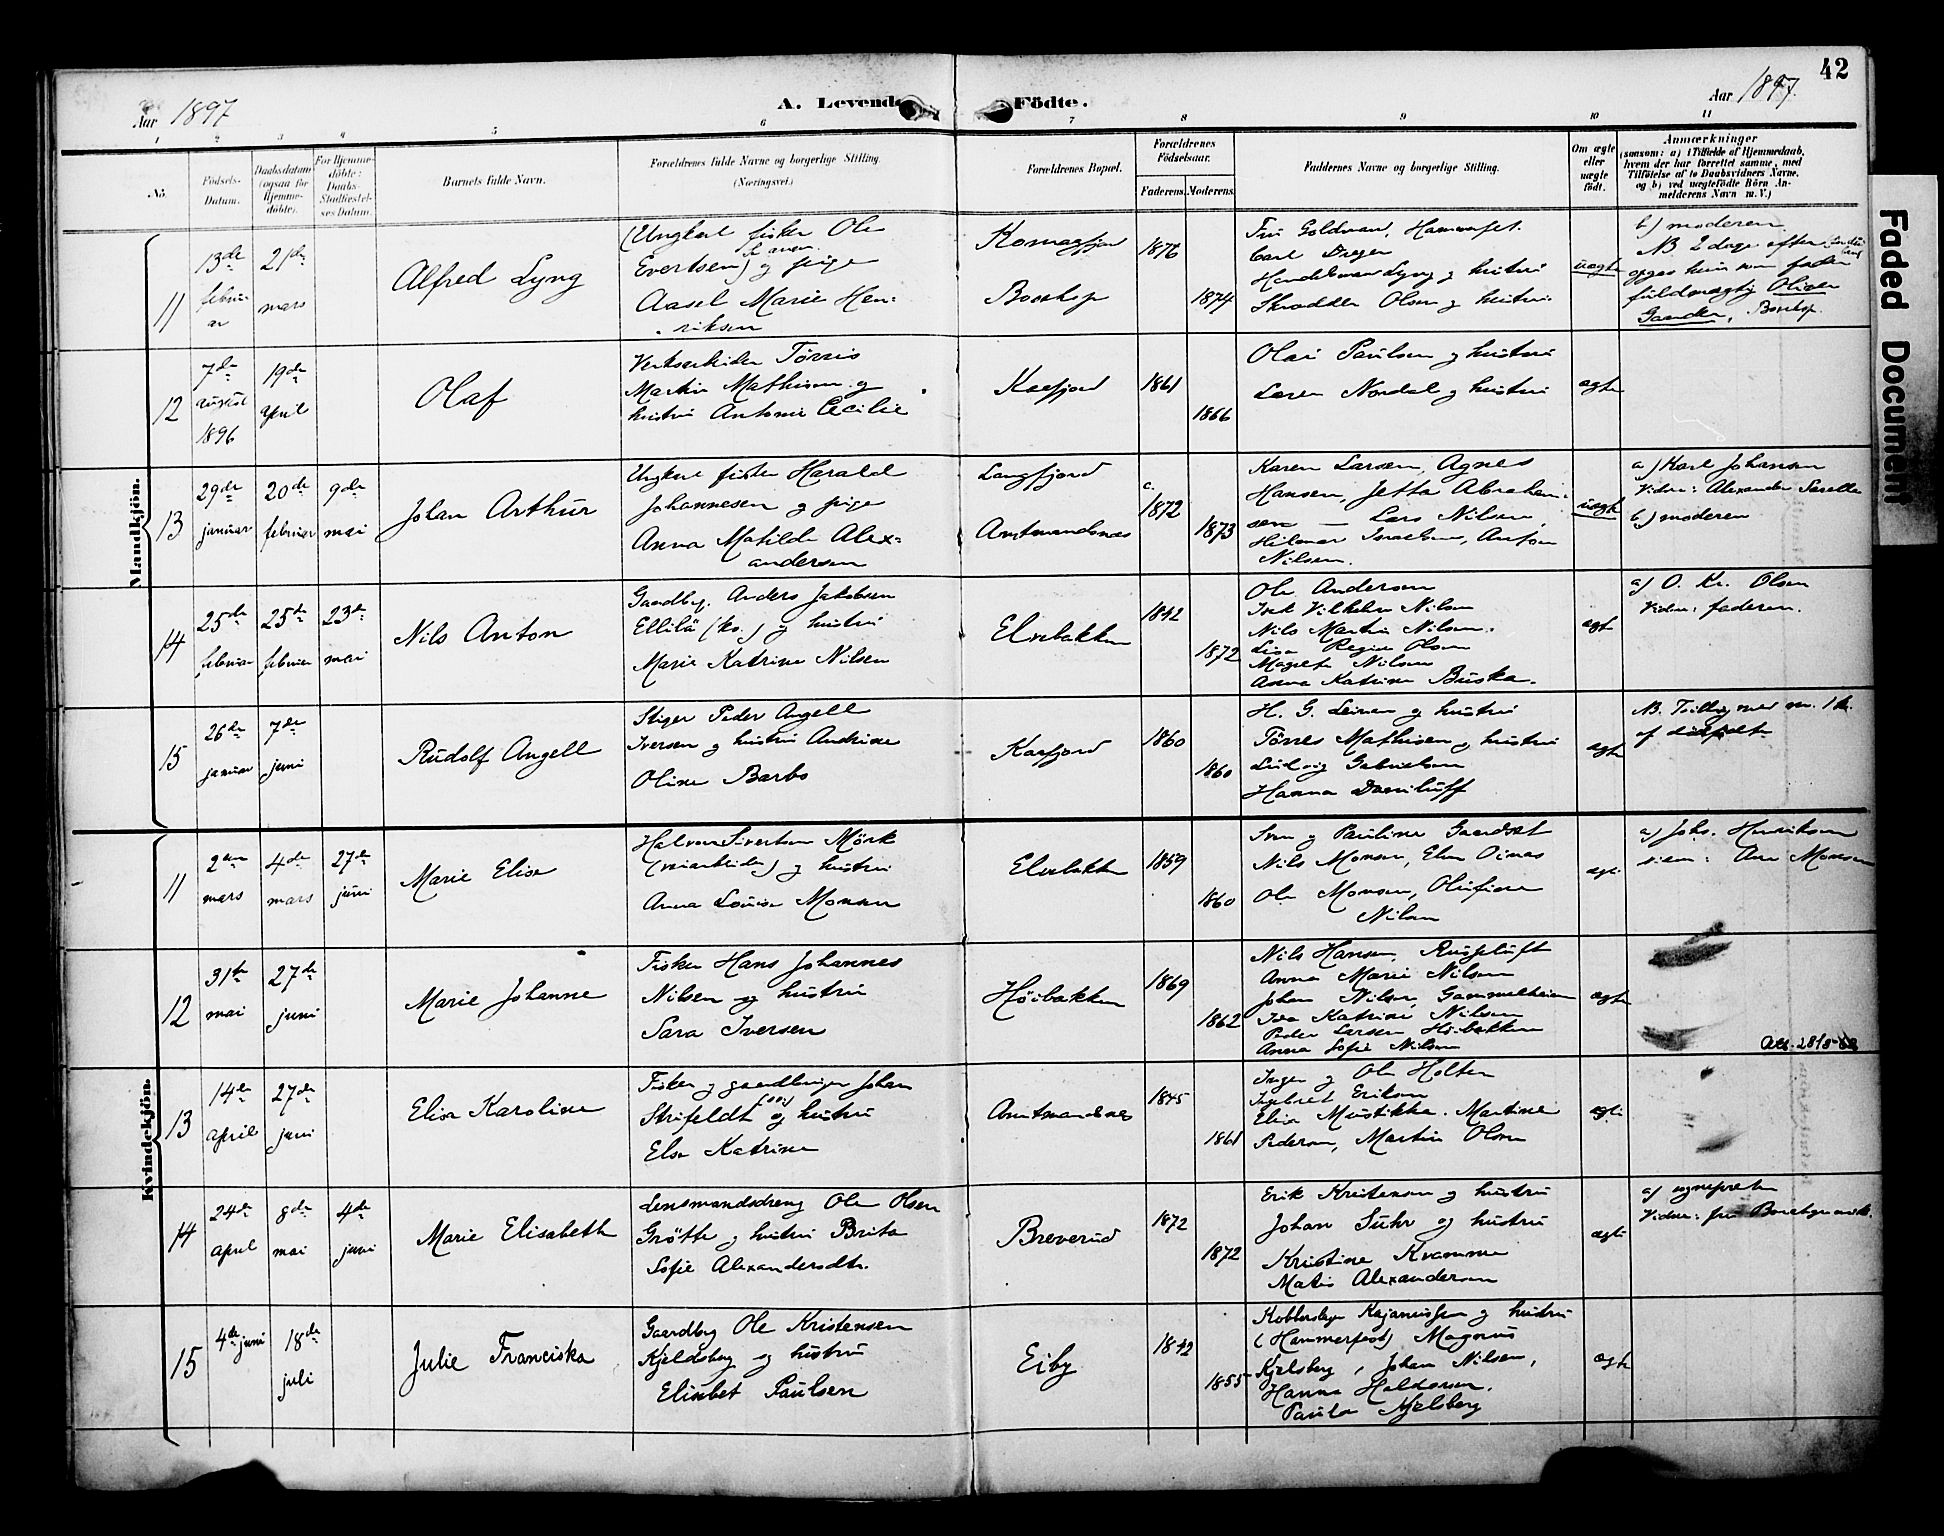 42
Aar 1897
A. Levende Födte.
Aar 1897.
1 2 3 4 5 6 7 8 9 10 11
No.
Födsels-Datum.
Daabsdatum (ogsaa for Hjemme-döbte).
For Hjemme-döbte: Daabs-Stadfæstel-ses Datum.
Barnets fulde Navn.
Forældrenes fulde Navne og borgerlige Stilling.
(Næringsvei.)
Forældrenes Bopæl.
Forældrenes Födselsaar.
Faderens. Moderens.
Faddernes Navne og borgerlige Stilling.
Om ægte eller uægte født.
Anmærkninger
(saasom: a) i Tilfælde af Hjemmedaab, hvem der har forrettet samme, med Tilføielse af to Daabsvidners Navne, og b) ved uægtefødte Börn An-melderens Navn m. V.)
Mandkjön.
11
13de februar
21de mars
Alfred Lyng
(Ungkarl fisker Ole
Evertsen) og pige
Aasel Marie Hen-
riksen
Komagfjord
Bosekop
1876
1874
Fru Goldman, Hammerfest.
Carl Dreyer
Handelsman Lyng og hustru
Skrædder Olsen og hustru
uægte
b) moderen
NB. 2 dage efter
opgas hun som fader
fuldmægtig Oliver
Gander, Bosekop.
12
7de august 1896
19de april
Olaf
Verksarbeider Tørris
Martin Mathisen og
hustru Antonie Cecilie
Kaafjord
1861
1866
Olai Paulsen og hustru
Søren Nordal og hustru
ægte
13
29de januar
20de februar
9de mai
Johan Arthur
Ungkarl fisker Harald
Johannesen og pige
Anna Matilde Alex-
andersen
Langfjord
Amtmandsnes
c. 1872
1873
Karen Larsen, Agnes
Hansen, Jetta Abraham-
sen — Lars Nilsen,
Hilmar Israelsen, Anton
Nilsen.
uægte
a) Karl Johansen
Vidne: Alexander
b) moderen
14
25de februar
25de februar
23de mai
Nils Anton
Gaardbr. Anders Jakobsen
Ellilä (kv.) og hustru
Marie Katrine Nilsen
Elvebakken
1842
1872
Ole Andersen
Isak Vilhelm Nilsen
Nils Martin Nilsen.
Lisa Regine Olsen
Magrete Nilsen
Anna Katrine Buska.
ægte
a) O. Kr. Olsen
Vidne: faderen.
15
26de januar
7de juni
Rudolf Angell
Stiger Peder Angell
Iversen og hustru Andrine
Oline Barbo
Kaafjord
1860
1860
H. G. Leinan og hustru
Tørres Mathisen og hustru
Ludvig Gabrielsen
Hanna Daniluff
ægte
NB. Tvilling med no. 1 k.
af dødfødte
Kvindekjön.
11
2den mars
4de mars
27de juni
Marie Elise
Halvor Sivertsen Mörk
(veiarbeider) og hustru
Anna Lovise Monsen
Elvebakken
1859
1860
Iver og Pauline Gaardset
Nils Monsen, Elen Oinas
Ole Monsen, Olufine
Nilsen
ægte
a) Johs. Henriksen
vidne: Ane Monsen
12
31te mai
27de juni
Marie Johanne
Fisker Hans Johannes
Nilsen og hustru
Sara Iversen
Høibakken
1869
1862
Nils Hansen, Russeluft
Anna Marie Nilsen
Johan Nilsen, Gammelheien
Ida Katrine Nilsen
Peder Larsen Høibakken
Anna Sofie Nilsen
ægte
Att. 28/8-62
13
14de april
27de juni
Elise Karoline
Fisker og gaardbruger Johan
Strifeldt og hustru
Else Katrine
Amtmandsnes
1845
1861
Inger og Ole Holten
Ingebret Eriksen
Elise Mustikka. Martine
Pedersen, Martin Olsen
ægte
14
24de april
8de mai
4de juni
Marie Elisabeth
Lensmandsdreng Ole Olsen
Grötte og hustru Brita
Sofie Alexandersdtr.
Breverud
1872
1872
Erik Kristensen og hustru
Johan Suhr og hustru
Kristine Kvamme
Matis Alexandersen
ægte
a) sognepresten
Vidne: fru
15
4de juni
18de juli
Julie Franciska
Gaardbg Ole Kristensen
Kjeldsberg og hustru
Elisabet Paulsen
Eiby
1842
1855
Kobberslager Kajanussen og hustru
(Hammerfest) Magnus
Kjelsberg, Johan Nilsen,
Hanna Haldorsen.
Paula Kjelsberg
ægte
Faded Document